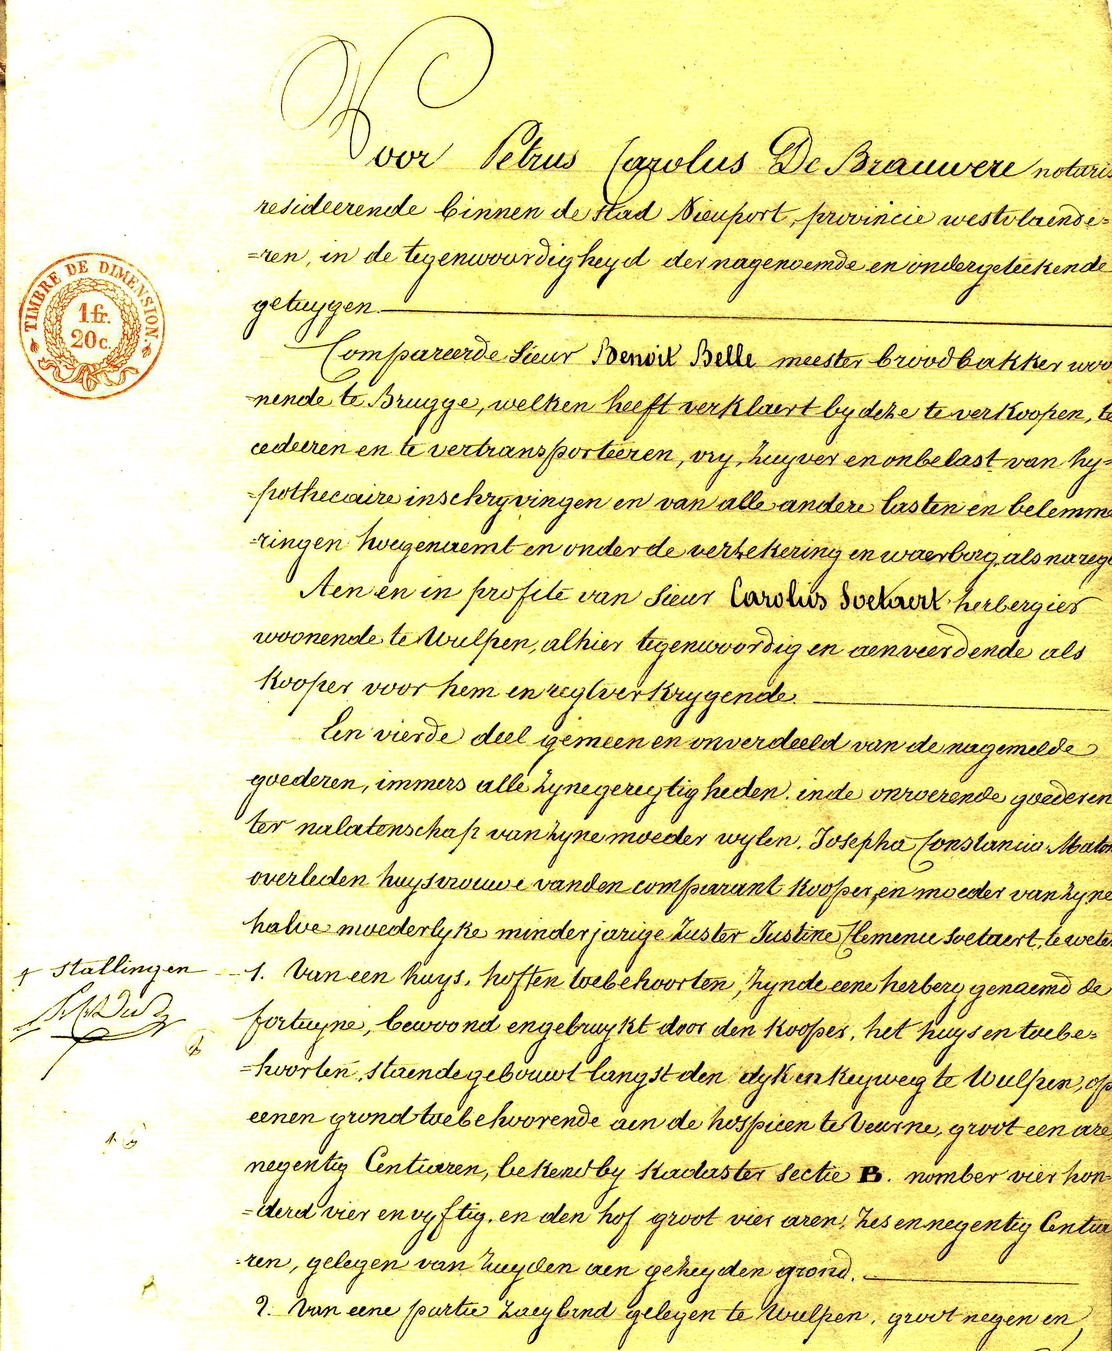 Voor Petrus Carolus De Brauwere notaris
resideerende binnen de stad Nieuport, provincie westvlaende=
=ren, in de tegenwoordigheyd der nagenoemde en ondergeteekende
getuygen.
TIMBRE DE DIMENSION.
1 fr.
20 c.
Compareerde Sieur Benoit Belle meester broodbakker woo
=nende te Brugge, welken heeft verklaert by deze te verkoopen, te
cedeeren en te vertransporteeren, vry, zuyver en onbelast van hy=
=pothecaire inschryvingen en van alle andere lasten en belemme
=ringen hoegenaemt en onder de verzekering en waerborg als naregt
Aen en in profite van Sieur Carolus Soetaert herbergier
woonende te Wulpen, alhier tegenwoordig en aenveerdende als
kooper voor hem en regtverkrygende.
Een vierde deel gemeen en onverdeeld van de nagemelde
goederen, immers alle zyne geregtigheden in de onroerende goederen
ter nalatenschap van zyne moeder wylen Josepha Constancia
overleden huysvrouwe van den comparant kooper, en moeder van zyne
halve moederlyke minderjarige zuster Justine Clemence Soetaert, te weten
+ stallingen
1. Van een huys, hof+en toebehoorten, zynde eene herberg genaemd de
fortuyne, bewoond en gebruykt door den kooper, het huys en toebe=
=hoorten, staende gebouwt langst den dyk en keyweg te Wulpen, op
eenen grond toebehoorende aen de hospicen te Veurne, groot een are
negentig Centiaren, bekend by kadaster sectie B. nomber vier hon=
=derd vier en vyftig, en den hof groot vier aren, zes en negentig Centia
=ren, gelegen van zuyden aen gezeyden grond.
2. Van eene partie zaeyland gelegen te Wulpen, groot negen en